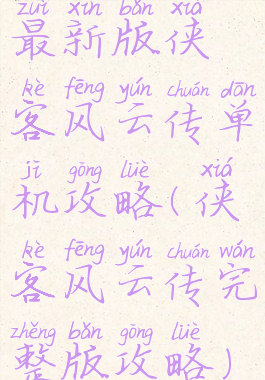 zuì xīn bǎn xiá
最新版侠
kè fēng yún chuán dān
客风云传单
jī gōng lüè xiá
机攻略(侠
kè fēng yún chuán wán
客风云传完
zhěng bǎn gōng lüè
整版攻略)